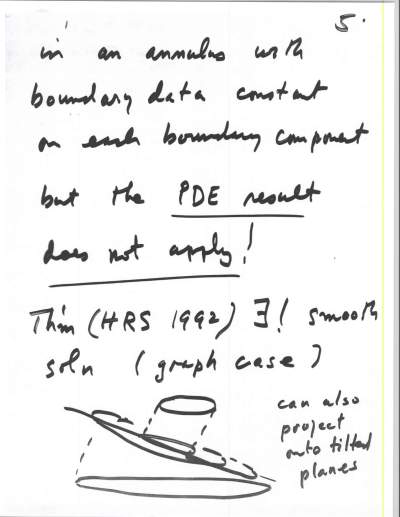 5.
in an annulus with
boundary data constant
on each boundary component
but the PDE result
does not apply!
Thm (HRS 1992) ∃! smooth
soln (graph case)
can also
project
onto tilted
planes